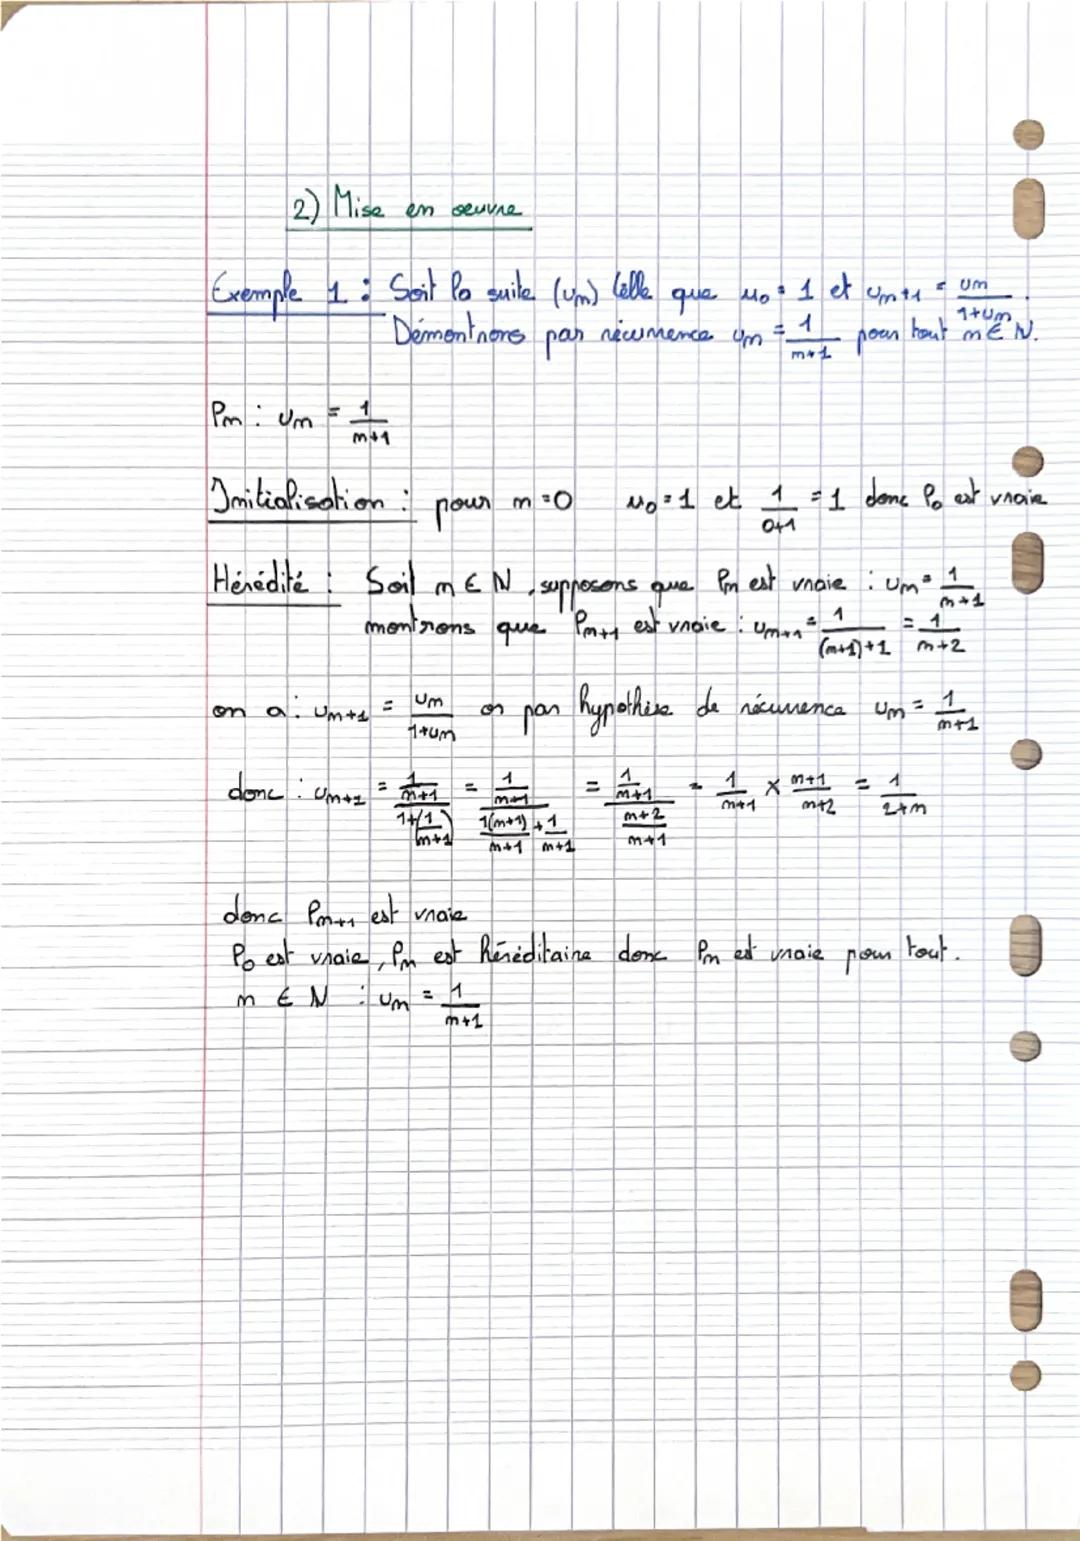 2) Mise en oeuvre
Exemple 1 : Soit la suite (un) telle que u0 = 1 et un+1 = un/(1+un).
Démontrons par récurrence un = 1/(n+1) pour tout n ∈ N.
Pn : un = 1/(n+1)
Initialisation : pour n=0 u0=1 et 1/(0+1) = 1 donc P0 est vraie
Hérédité : Soit n ∈ N, supposons que Pn est vraie : un = 1/(n+1)
montrons que Pn+1 est vraie : un+1 = 1/((n+1)+1) = 1/(n+2)
on a : un+1 = un/(1+un) or par hypothèse de récurrence un = 1/(n+1)
donc : un+1 = (1/(n+1))/(1+(1/(n+1))) = (1/(n+1))/(1(n+1)/(n+1) + 1/(n+1)) = (1/(n+1))/((n+2)/(n+1)) = 1/(n+1) × (n+1)/(n+2) = 1/(2+n)
donc Pn+1 est vraie
P0 est vraie, Pn est héréditaire donc Pn est vraie pour tout.
n ∈ N : un = 1/(n+1)